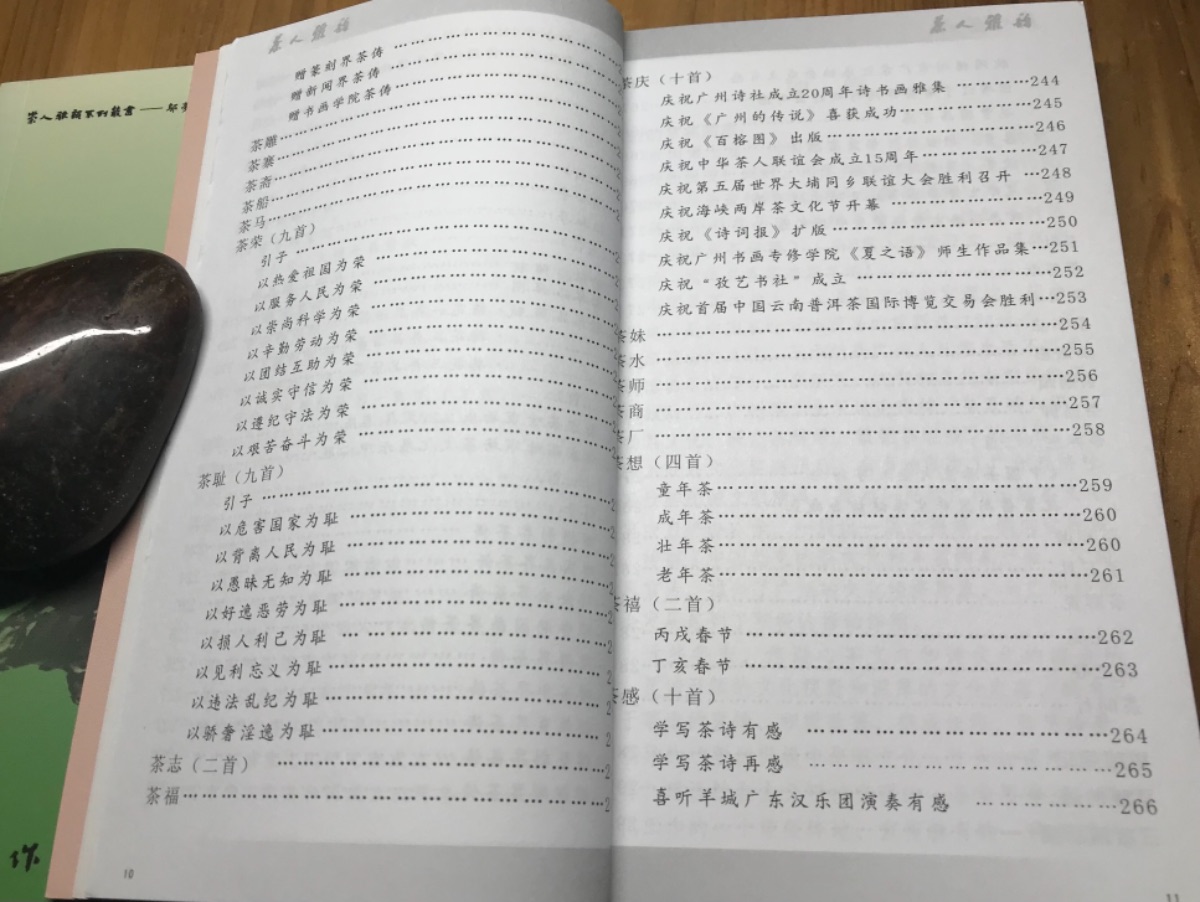 茶人雅韵
赠篆刻界茶俦 ………………………
赠新闻界茶俦 ………………………
赠书画学院茶俦………………………
茶雕………………………………………2
茶寨………………………………………2
茶斋………………………………………2
茶船………………………………………2
茶马………………………………………2
茶荣（九首）
引子 ………………………………………2
以热爱祖国为荣 ………………………2
以服务人民为荣 ………………………2
以崇尚科学为荣 ………………………2
以辛勤劳动为荣 ………………………2
以团结互助为荣 ………………………2
以诚实守信为荣 ………………………2
以遵纪守法为荣 ………………………2
以艰苦奋斗为荣 ………………………2
茶耻（九首）
引子 ………………………………………2
以危害国家为耻 ………………………2
以背离人民为耻 ………………………2
以愚昧无知为耻 ………………………2
以好逸恶劳为耻 ………………………2
以损人利己为耻 ………………………2
以见利忘义为耻 ………………………2
以违法乱纪为耻 ………………………2
以骄奢淫逸为耻 ………………………2
茶志（二首） ……………………………2
茶福………………………………………2
10
茶人雅韵
茶庆（十首）
庆祝广州诗社成立20周年诗书画雅集 …………244
庆祝《广州的传说》喜获成功……………………245
庆祝《百榕图》出版………………………………246
庆祝中华茶人联谊会成立15周年…………………247
庆祝第五届世界大埔同乡联谊大会胜利召开 …248
庆祝海峡两岸茶文化节开幕 ……………………249
庆祝《诗词报》扩版………………………………250
庆祝广州书画专修学院《夏之语》师生作品集…251
庆祝“孜艺书社”成立 ……………………………252
庆祝首届中国云南普洱茶国际博览交易会胜利…253
茶妹 ………………………………………………254
茶水 ………………………………………………255
茶师 ………………………………………………256
茶商 ………………………………………………257
茶厂 ………………………………………………258
茶想（四首）
童年茶………………………………………………259
成年茶………………………………………………260
壮年茶………………………………………………260
老年茶………………………………………………261
茶禧（二首）
丙戌春节 …………………………………………262
丁亥春节 …………………………………………263
茶感（十首）
学写茶诗有感 ……………………………………264
学写茶诗再感 ……………………………………265
喜听羊城广东汉乐团演奏有感 …………………266
11